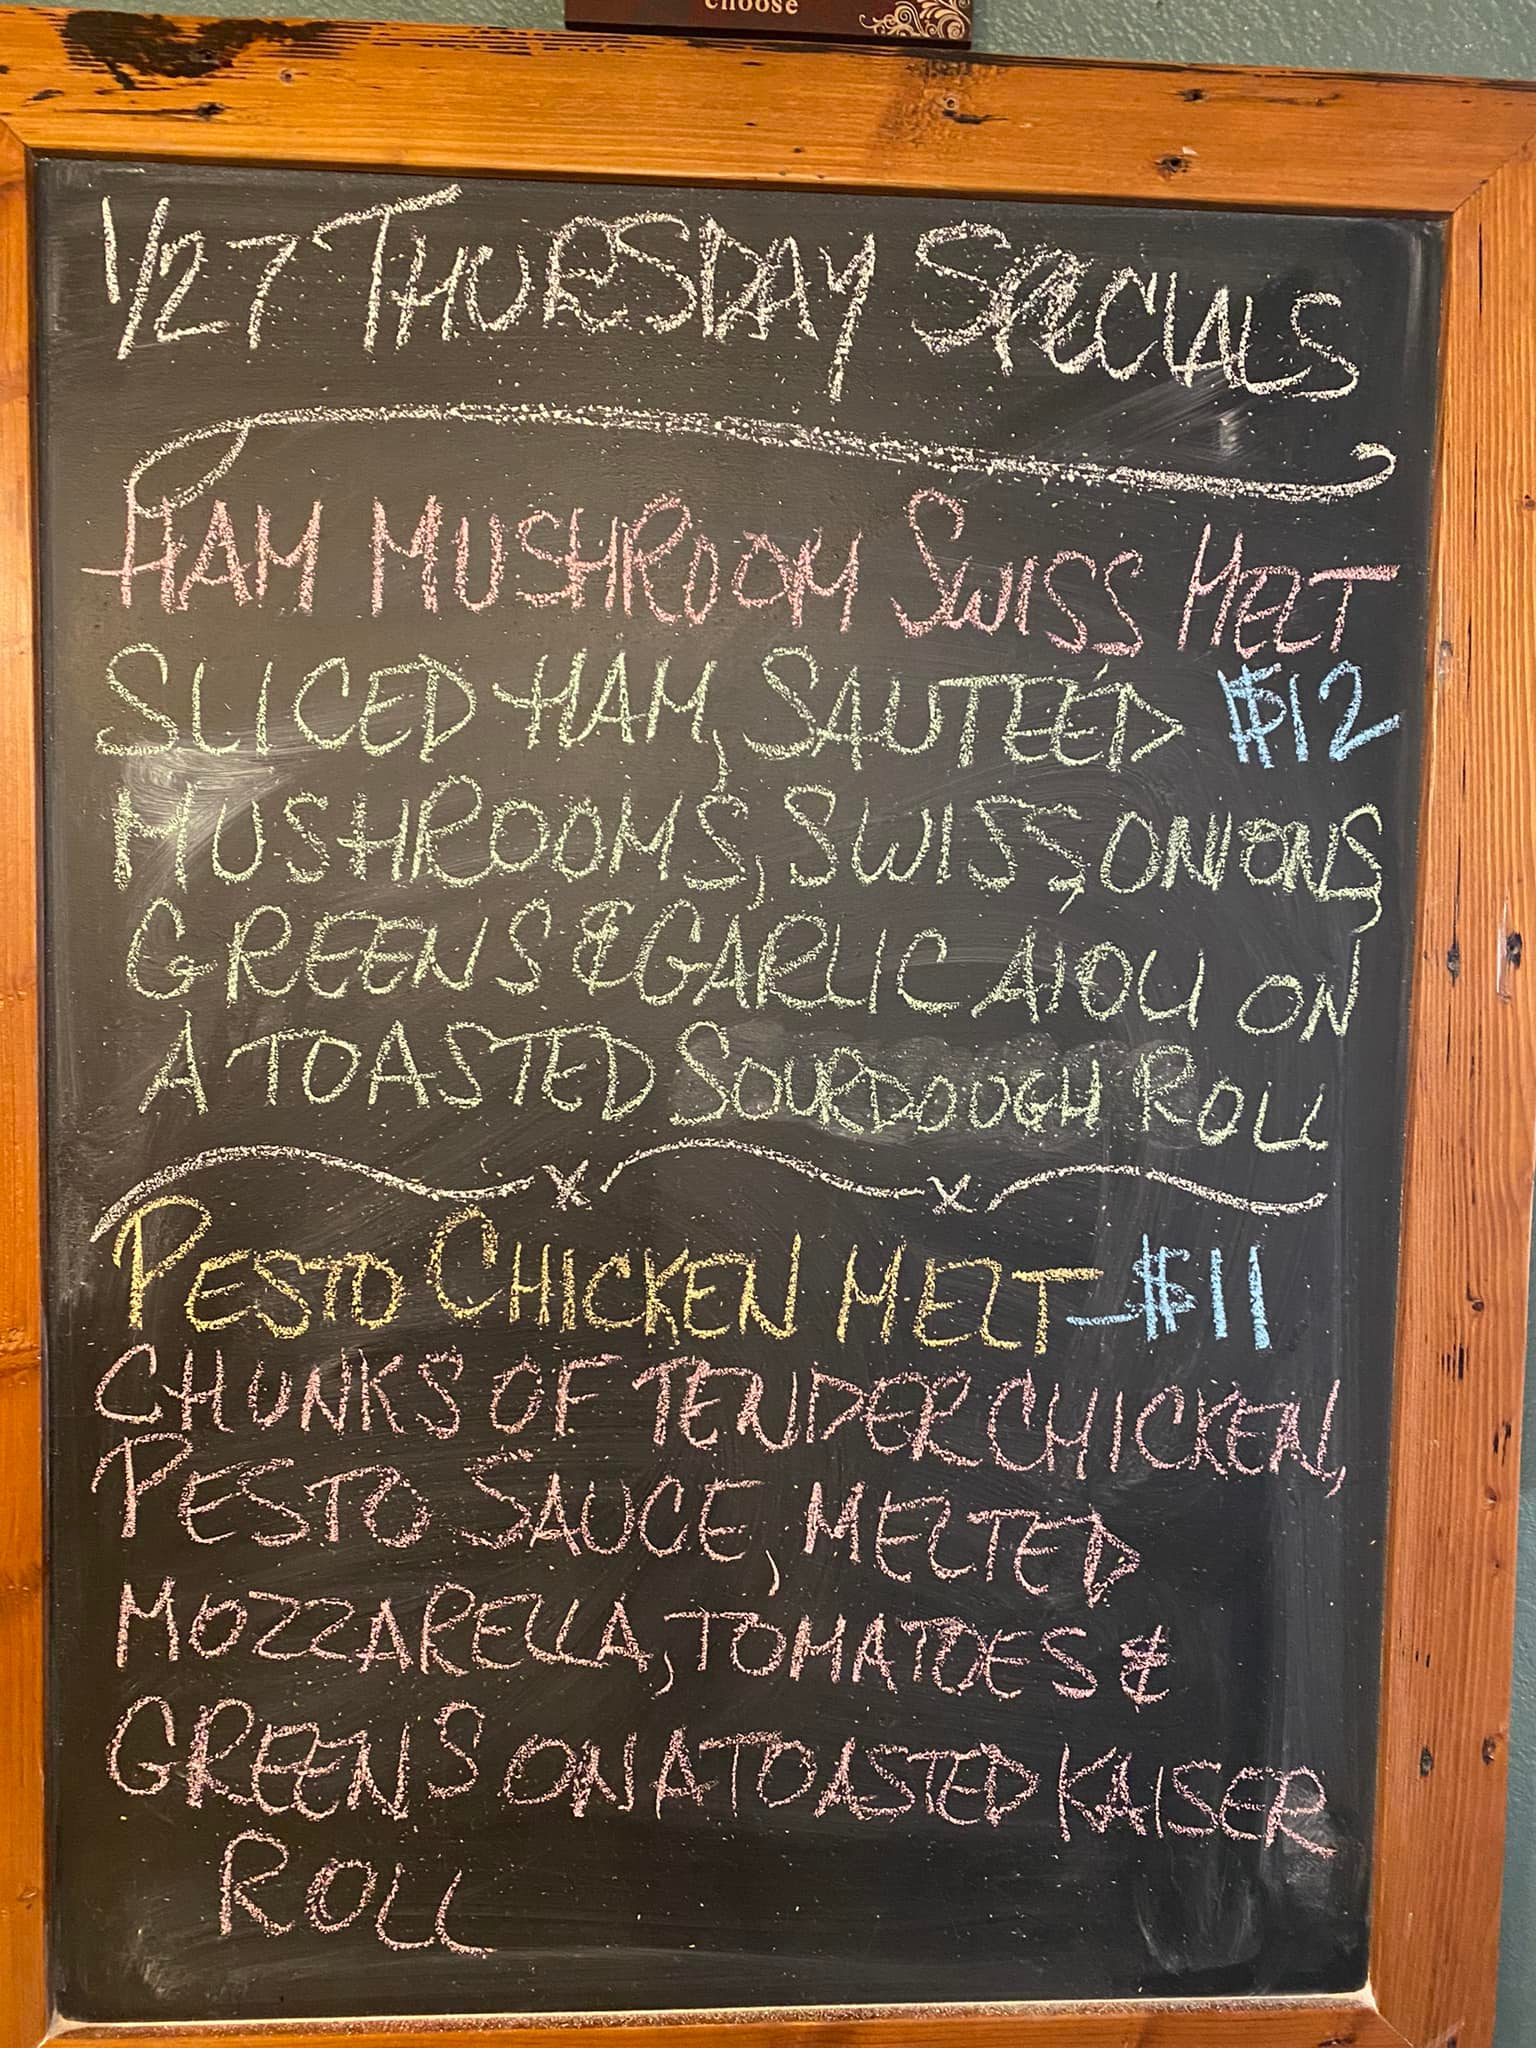 choose
1/27 THUESDAY SPECIALS
HAM MUSHROOM SWISS MELT
SLICED HAM, SAUTEÉD $12
MUSHROOMS, SWISS, ONIONS,
GREENS & GARLIC AIOLI ON
A TOASTED SOURDOUGH ROLL
PESTO CHICKEN MELT - $11
CHUNKS OF TENDER CHICKEN,
PESTO SAUCE, MELTED
MOZZARELLA, TOMATOES &
GREENS ON A TOASTED KAISER
ROLL